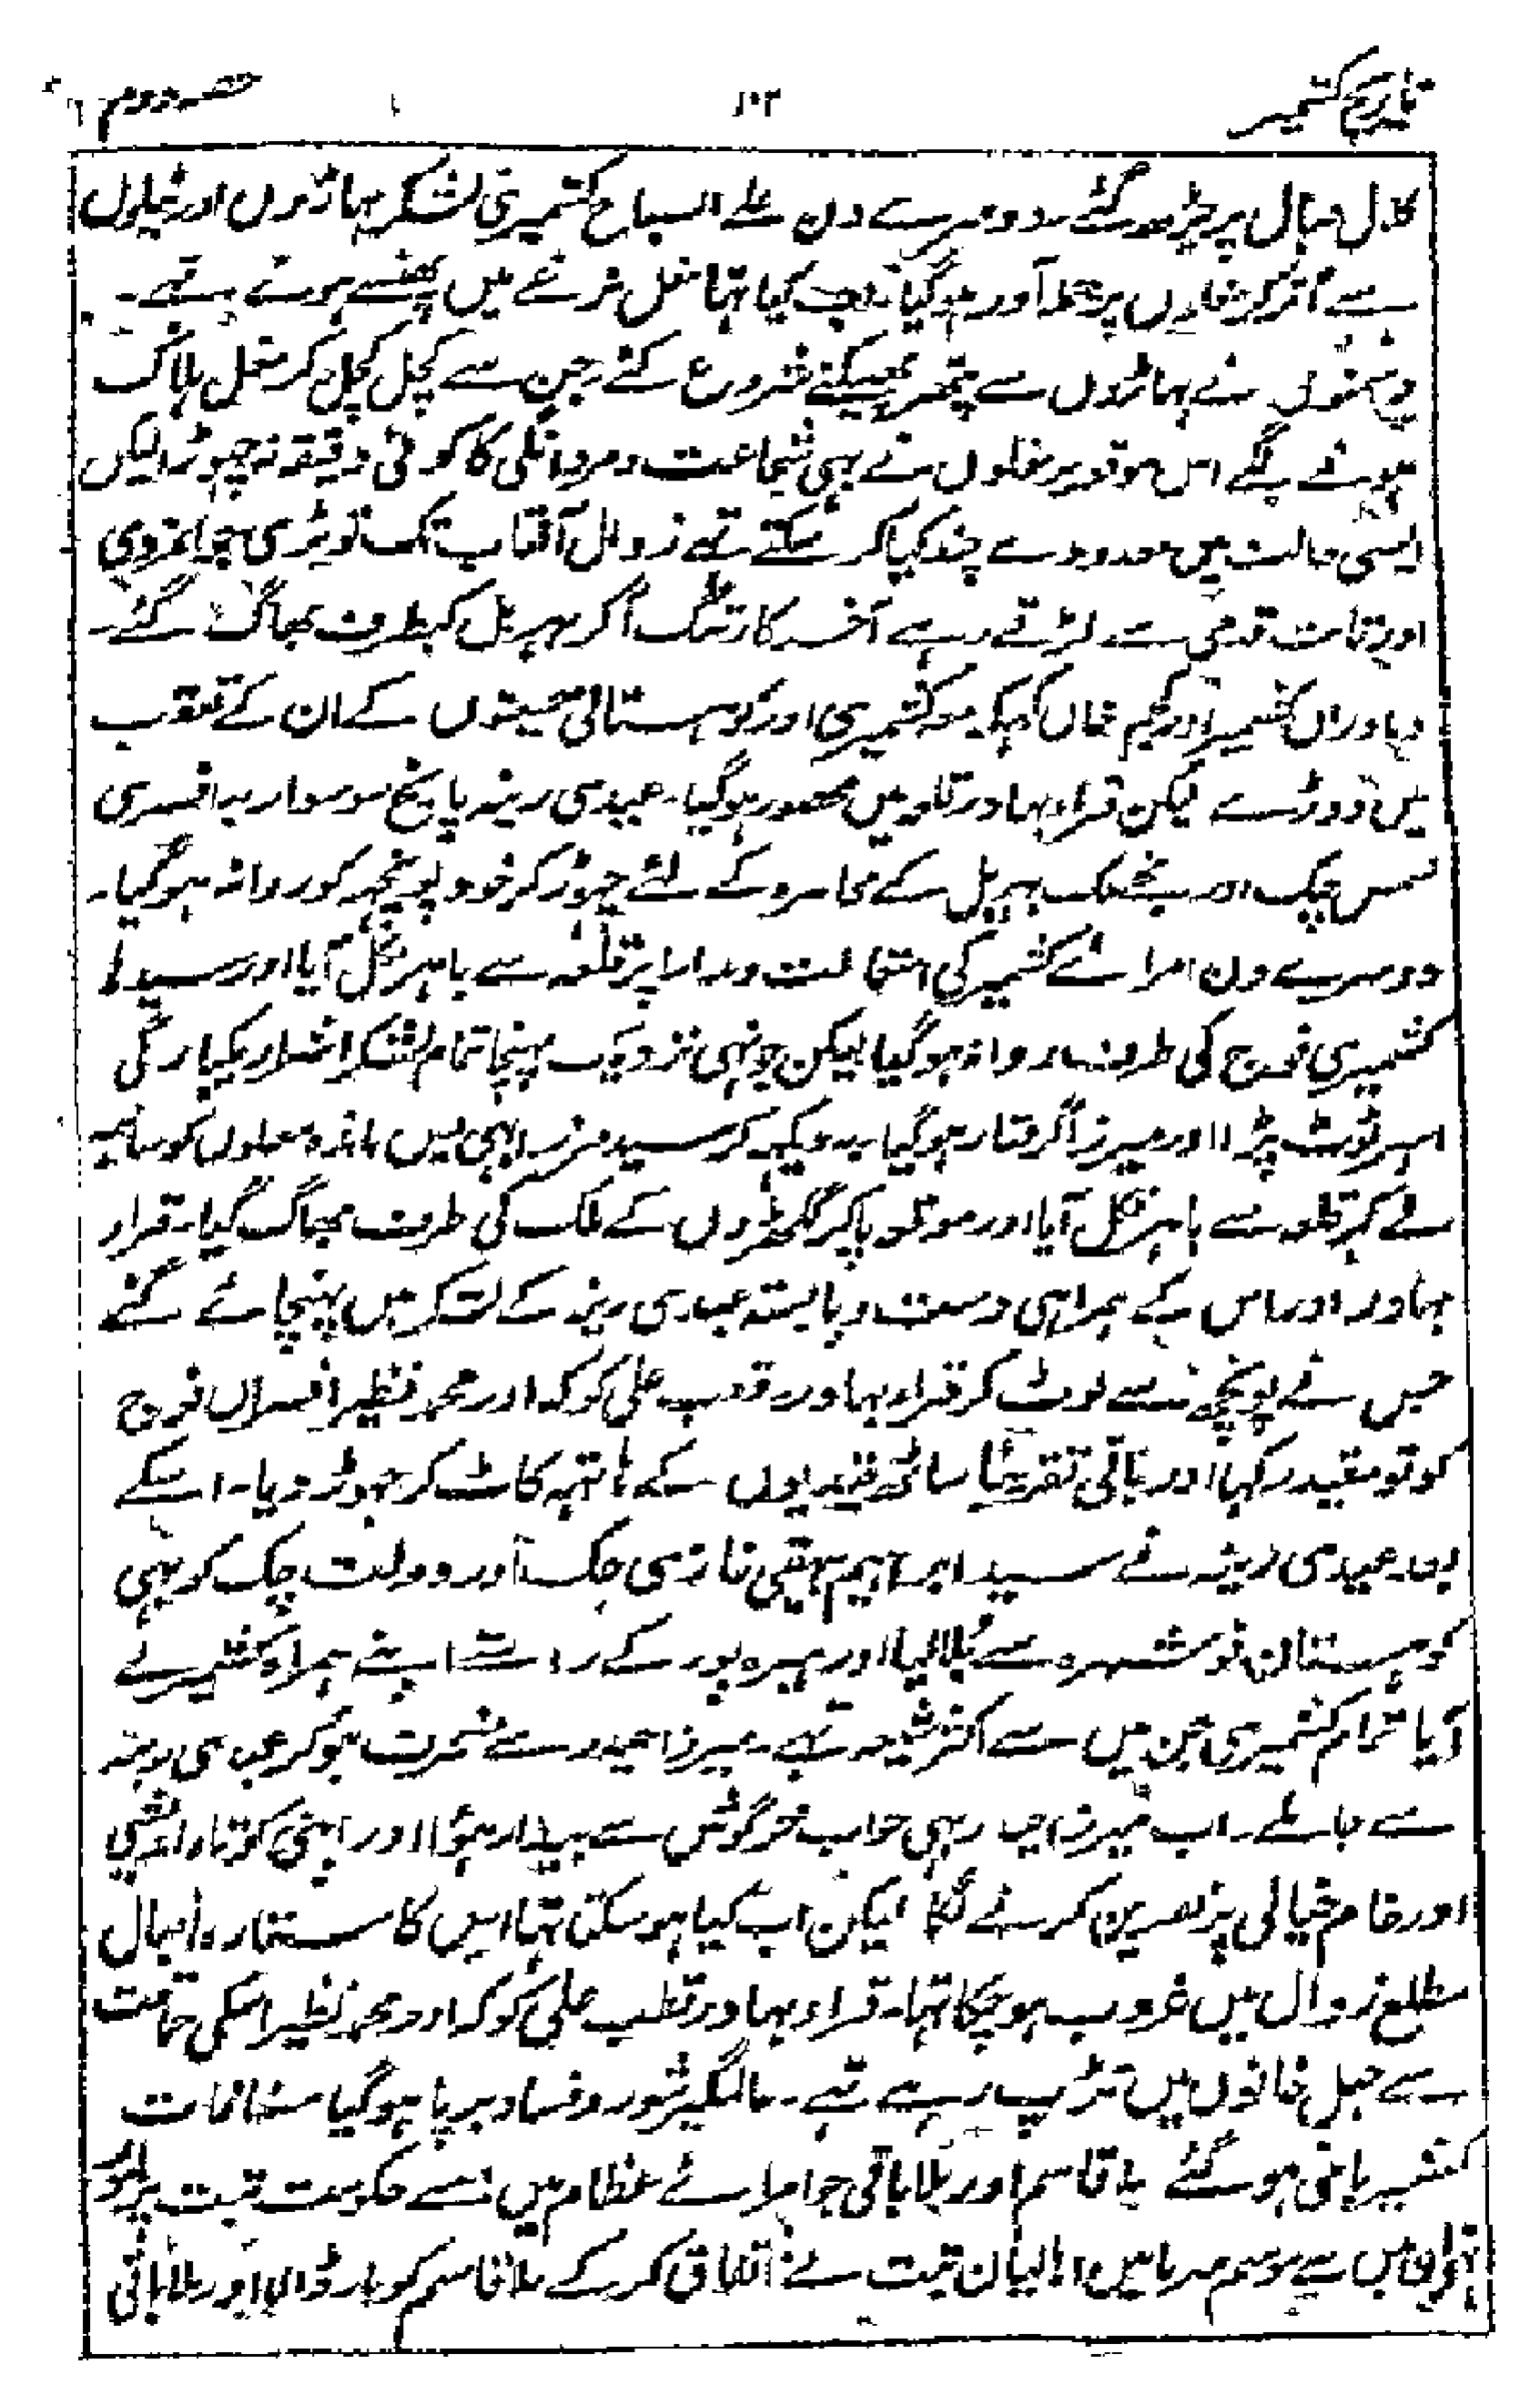 تاریخ کشمیر ۱۰۲ حصہ دوم
کابل جبال پر چڑھ گئے دوسرے دن علے الصباح کشمیری لشکر پہاڑوں اور ٹیلوں
سے اتر کر مغلوں پر حملہ آور ہو گیا۔ اب کیا تہا مغل نرغے میں پھنسے ہوئے تہے۔
دشمنوں نے پہاڑوں سے پتھر پھینکنے شروع کئے جن سے کچل کچل کر مغل ہلاک
ہونے لگے اس موقعہ پر مغلوں نے بہی شجاعت و مردانگی کا کوئی دقیقہ نہ چہوڑا لیکن
ایسی حالت میں معدودے چند کیا کر سکتے تہے زوال آفتاب تک توبڑی جوانمردی
اور ثابت قدمی سے لڑتے رہے آخر کار تنگ آکر بہربل کیطرف بھاگ گئے۔
بہادران کشمیر اور حکیم خاں کہکہ معہ کشمیری اور کوہستانی جمعیتوں کے ان کے تعقب
میں دوڑے لیکن قرابہادر قلعہ میں محصور ہو گیا۔ عیدی رینہ پانچ سو سوار بہ افسری
شمس چک اور بہربل کے محاصرہ کے لئے چہوڑ کر خود پونچہہ کو روانہ ہو گیا۔
دوسرے دن امرائے کشمیر کی استمالت و مدارا پر قلعہ سے باہر نکل آیا اور سیدا
کشمیری فوج کی طرف روانہ ہو گیا لیکن جونہی نزدیک پہنچا تمام لشکر یکبارگی
اسپر ٹوٹ پڑا اور میرزا گرفتار ہو گیا یہ دیکہہ کر سید میرزا ماندہ مغلوں کو ساتہہ
لے کر قلعہ سے باہر نکل آیا اور موقعہ پاکر گکھڑوں کے ملک کی طرف بھاگ گیا۔ قرا
بہادر اور اس کے ہمراہی دست و پا بستہ عیدی رینہ کے لشکر میں پہنچائے گئے
جس نے پونچہہ سے لوٹ کر قرابہادر قطب علی کوکہ اور محمد نظیر افسران فوج
کو تو مقید رکہا اور باقی تقریباً ساٹھ قیدیوں کے ہاتہہ کاٹ کر چہوڑ دیا۔ اسکے
بعد عیدی رینہ نے سید ابراہیم بیہقی غازی چک اور دولت چک کو بہی
کوہستان نوشہرہ سے بلا لیا اور ہیرہ پور کے راستے اپنے ہمراہ کشمیر لے
آیا تمام کشمیری جن میں سے اکثر شیعہ تہے۔ میرزا حیدر سے منحرف ہو کر عیدی رینہ
سے جا ملے۔ اب میرزا حیدر بہی خواب خرگوش سے بیدار ہوا اور اپنی کوتاہ اندیشی
اور خام خیالی پر نفرین کرنے لگا لیکن اب کیا ہو سکتا تہا اس کا ستارہ اقبال
مطلع زوال میں غروب ہو چکا تہا۔ قرا بہادر قطب علی کوکہ اور محمد نظیر اسکی حماقت
سے جیل خانوں میں تڑپ رہے تہے۔ عالمگیر شور و فساد برپا ہو گیا مضافات
کشمیر باغی ہو گئے ملا قاسم اور ملا باقی جو امرائے عظام میں سے حکومت تبت پر مامور
تہے ان میں سے موسم سرما میں اہالیان تبت نے اتفاق کر کے ملا قاسم کو مار ڈالا اور ملا باقی